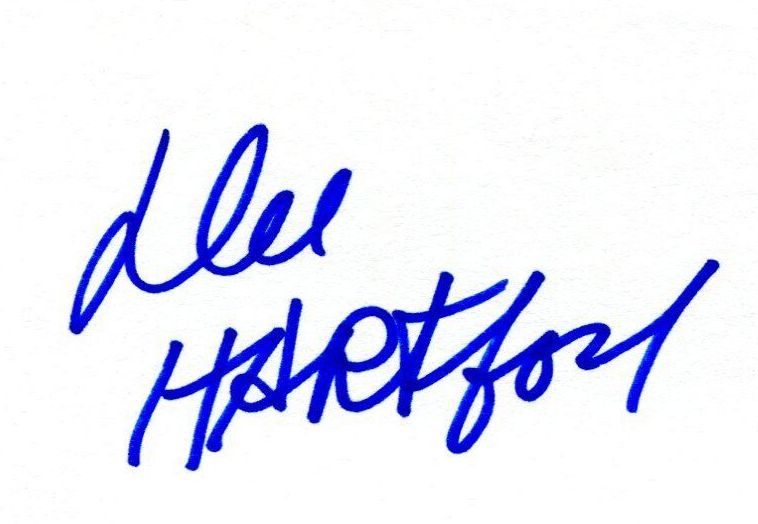 Dee
HARTford